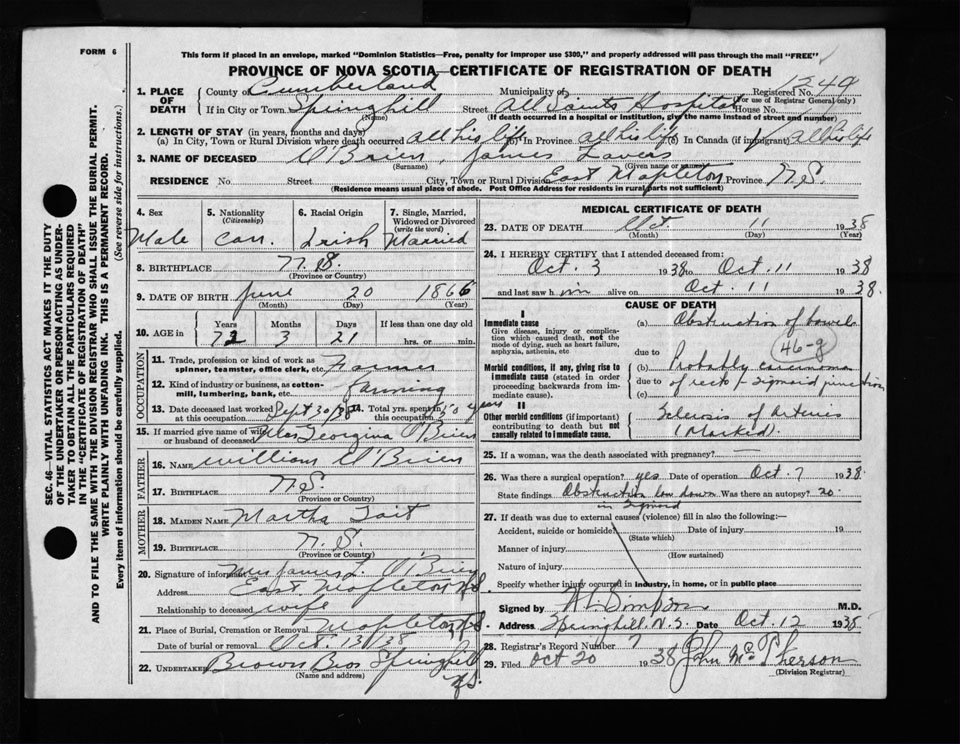 FORM 6
This form if placed in an envelope, marked "Dominion Statistics—Free, penalty for improper use $300," and properly addressed will pass through the mail "FREE"
PROVINCE OF NOVA SCOTIA—CERTIFICATE OF REGISTRATION OF DEATH
1549
1. PLACE OF DEATH County of Cumberland Municipality of Registered No. (For use of Registrar General only)
If in City or Town Springhill (Name) Street All Saints Hospital House No.
(If death occurred in a hospital or institution, give the name instead of street and number)
2. LENGTH OF STAY (in years, months and days)
(a) In City, Town or Rural Division where death occurred all his life (b) In Province all his life (c) In Canada (if immigrant) all his life
3. NAME OF DECEASED O'Brien, James Lavers
(Surname) (Given name or names)
RESIDENCE No. Street City, Town or Rural Division East Mapleton Province N.S.
(Residence means usual place of abode. Post Office Address for residents in rural parts not sufficient)
4. Sex Male
5. Nationality (Citizenship) Can.
6. Racial Origin Irish
7. Single, Married, Widowed or Divorced (write the word) Married
8. BIRTHPLACE N.S.
(Province or Country)
9. DATE OF BIRTH June 20 1866
(Month) (Day) (Year)
10. AGE in Years Months Days If less than one day old
72 3 21 hrs. or min.
OCCUPATION
11. Trade, profession or kind of work as spinner, teamster, office clerk, etc. Farmer
12. Kind of industry or business, as cotton-mill, lumbering, bank, etc. Farming
13. Date deceased last worked at this occupation Sept 30/38 14. Total yrs. spent in this occupation 50 years
15. If married give name of wife or husband of deceased Mrs Georgina O'Brien
FATHER
16. NAME William O'Brien
17. BIRTHPLACE N.S.
(Province or Country)
MOTHER
18. MAIDEN NAME Martha Tait
19. BIRTHPLACE N.S.
(Province or Country)
20. Signature of informant Mrs James L. O'Brien
Address East Mapleton N.S.
Relationship to deceased wife
21. Place of Burial, Cremation or Removal Mapleton N.S.
Date of burial or removal Oct. 13/38
22. UNDERTAKER Brown Bros Springhill N.S.
(Name and address)
MEDICAL CERTIFICATE OF DEATH
23. DATE OF DEATH Oct 11 1938
(Month) (Day) (Year)
24. I HEREBY CERTIFY that I attended deceased from:
Oct. 3 1938 to Oct. 11 1938
and last saw him alive on Oct. 11 1938.
CAUSE OF DEATH
I
Immediate cause
Give disease, injury or complication which caused death, not the mode of dying, such as heart failure, asphyxia, asthenia, etc
(a) Obstruction of bowel
46-g
due to
Morbid conditions, if any, giving rise to immediate cause (stated in order proceeding backwards from immediate cause)
(b) Probably carcinoma
due to of recto-sigmoid junction
(c)
II
Other morbid conditions (if important) contributing to death but not causally related to immediate cause.
Sclerosis of Arteries
(Marked).
25. If a woman, was the death associated with pregnancy? —
26. Was there a surgical operation? yes Date of operation Oct. 7 1938.
State findings Obstruction low down in Sigmoid Was there an autopsy? no.
27. If death was due to external causes (violence) fill in also the following:—
Accident, suicide or homicide? Date of injury 19
(State which)
Manner of injury
(How sustained)
Nature of injury
Specify whether injury occurred in industry, in home, or in public place
Signed by Simpson M.D.
Address Springhill, N.S. Date Oct. 12 1938
28. Registrar's Record Number 7
29. Filed Oct 20 1938 John McPherson
(Division Registrar)
SEC. 46—VITAL STATISTICS ACT MAKES IT THE DUTY
OF THE UNDERTAKER OR PERSON ACTING AS UNDER-
TAKER TO OBTAIN ALL THE PARTICULARS REQUIRED
IN THE "CERTIFICATE OF REGISTRATION OF DEATH"
AND TO FILE THE SAME WITH THE DIVISION REGISTRAR WHO SHALL ISSUE THE BURIAL PERMIT.
WRITE PLAINLY WITH UNFADING INK. THIS IS A PERMANENT RECORD.
Every item of information should be carefully supplied. (See reverse side for instructions.)